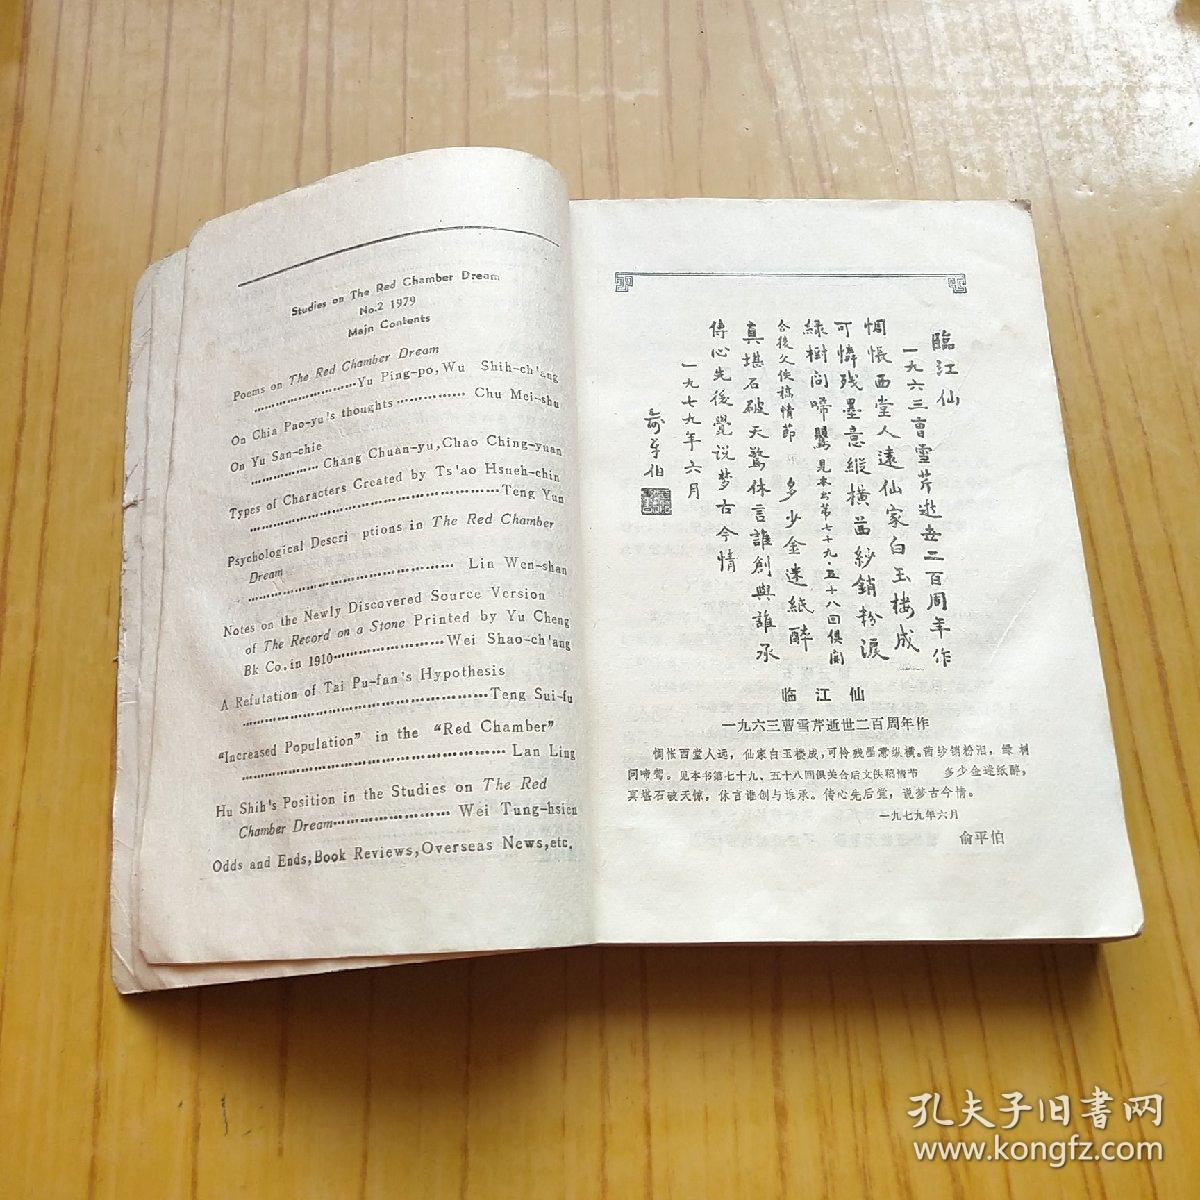 Studies on The Red Chamber Dream
No.2 1979
Main Contents
Poems on The Red Chamber Dream
Yu Ping-po, Wu Shih-ch'ang
On Chia Pao-yu's thoughts Chu Mei-shu
On Yu San-chie
Chang Chuan-yu, Chao Ching-yuan
Types of Characters Created by Ts'ao Hsueh-chin
Teng Yun
Psychological Descri ptions in The Red Chamber
Dream
Lin Wen-shan
Notes on the Newly Discovered Source Version
of The Record on a Stone Printed by Yu Cheng
Bk Co. in 1910 Wei Shao-ch'ang
A Refutation of Tai Pu-fan's Hypothesis
Teng Sui-fu
"Increased Population" in the "Red Chamber"
Lan Ling
Hu Shih's Position in the Studies on The Red
Chamber Dream Wei Tung-hsien
Odds and Ends, Book Reviews, Overseas News, etc.
臨江仙
一九六三曹雪芹逝世二百周年作
惆悵西堂人遠仙家白玉樓成
可憐殘墨意縱橫茜紗銷粉淚
綠樹問啼鶯見本书第七十九·五十八回俱關
合後文佚稿情節 多少金迷紙醉
真堪石破天驚休言誰創與誰承
傳心先後覺说梦古今情
一九七九年六月
俞平伯
临江仙
一九六三曹雪芹逝世二百周年作
惆怅西堂人远,仙家白玉楼成,可怜残墨意纵横。茜纱销粉泪,绿树
问啼莺。见本书第七十九、五十八回俱关合后文佚稿情节 多少金迷纸醉,
真堪石破天惊,休言谁创与谁承。传心先后觉,说梦古今情。
一九七九年六月
俞平伯
孔夫子旧书网
www.kongfz.com